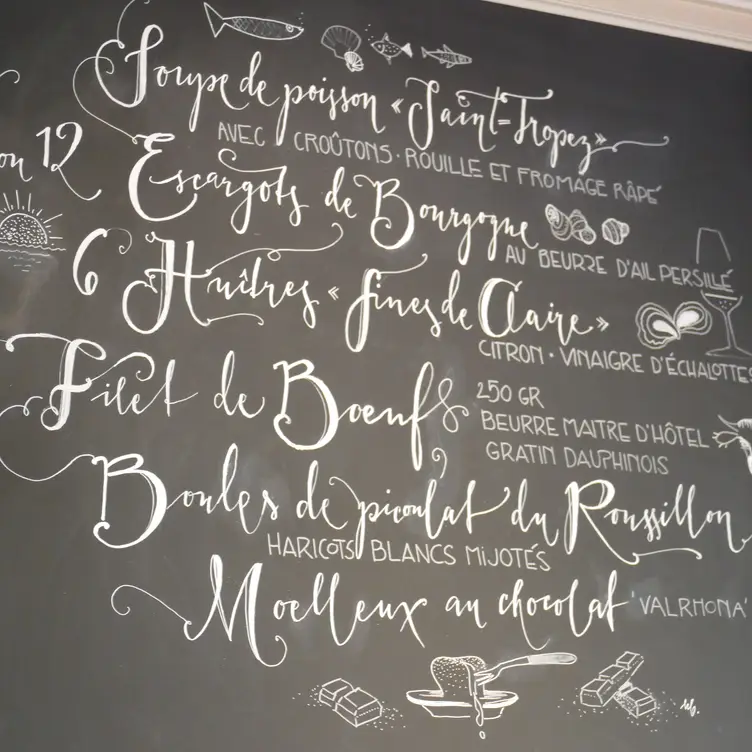 Soupe de poisson « Saint-Tropez »
AVEC CROÛTONS · ROUILLE ET FROMAGE RÂPÉ
12 Escargots de Bourgogne
AU BEURRE D'AIL PERSILLÉ
6 Huîtres « fines de Claire »
CITRON · VINAIGRE D'ÉCHALOTTES
Filet de Boeuf
250 GR
BEURRE MAITRE D'HÔTEL
GRATIN DAUPHINOIS
Boules de picoulat du Roussillon
HARICOTS BLANCS MIJOTÉS
Moelleux au chocolat 'VALRHONA'